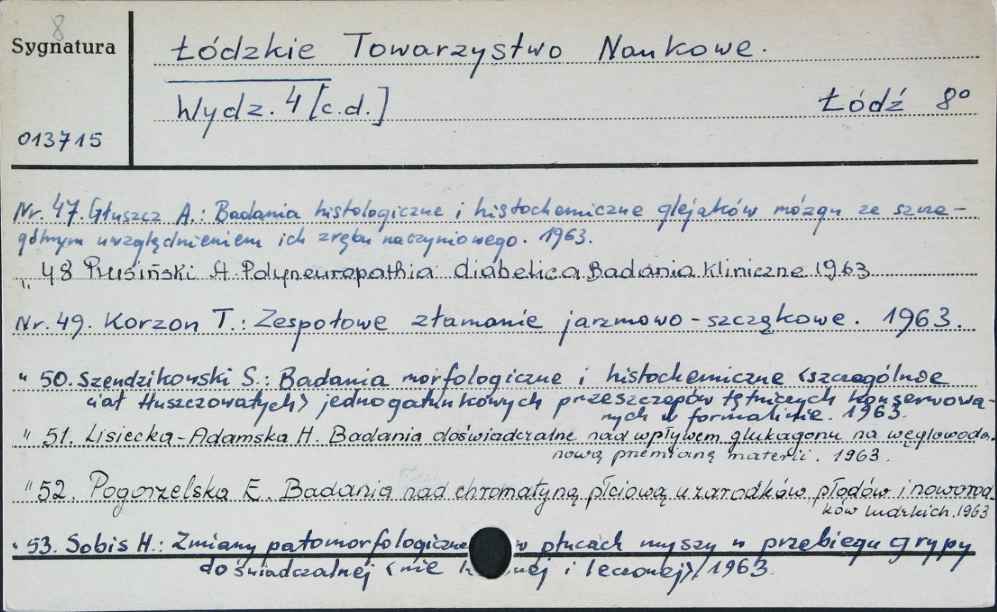 8
Sygnatura
Łódzkie Towarzystwo Naukowe.
Wydz. 4 [c.d.]
Łódź 8º
013715
Nr. 47. Głuszcz A.: Badania histologiczne i histochemiczne glejaków mózgu ze szcze-
gólnym uwzględnieniem ich zrębu naczyniowego. 1963.
" 48 Prusiński A. Polyneuropathia diabetica. Badania kliniczne 1963
Nr. 49. Korzon T.: Zespołowe złamanie jarzmowo-szczękowe. 1963.
" 50. Szendzikowski S.: Badania morfologiczne i histochemiczne <szczególnie
ciał tłuszczowatych> jednogatunkowych przeszczepów tętniczych konserwowa-
nych w formalinie. 1963.
" 51. Lisiecka-Adamska H. Badania doświadczalne nad wpływem glukagonu na węglowoda-
nową przemianę materii. 1963.
" 52. Pogorzelska E. Badania nad chromatyną płciową u zarodków płodów i noworod-
ków ludzkich. 1963
" 53. Sobis H.: Zmiany patomorfologiczne w płucach myszy w przebiegu grypy
doświadczalnej <nie i leczonej> 1963.